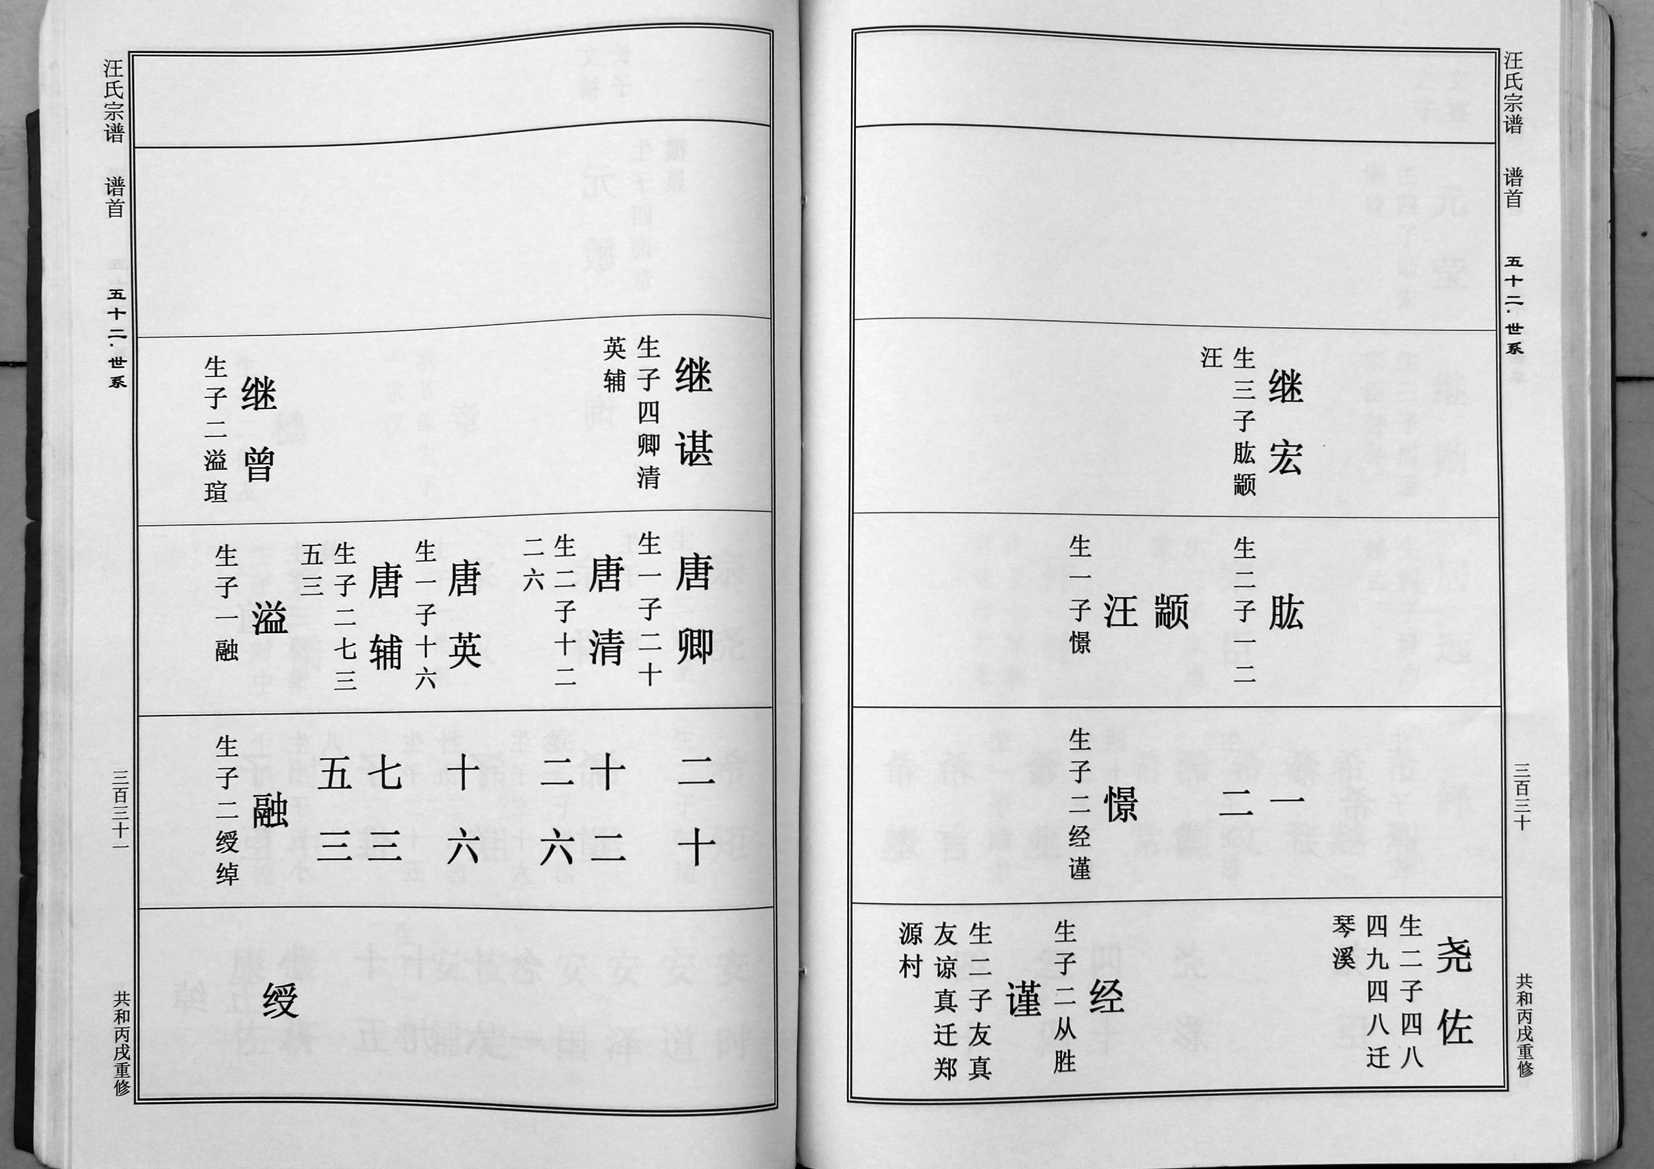 汪氏宗谱
谱首
五十二·世系
三百三十
共和丙戌重修
继宏
生三子肱颛
汪
肱
生二子一二
颛
汪
生一子憬
一
二
憬
生子二经谨
尧佐
生二子四八
四九四八迁
琴溪
经
生子二从胜
谨
生二子友真
友谅真迁郑
源村
继谌
生子四卿清
英辅
继曾
生子二溢瑄
唐卿
生一子二十
唐清
生二子十二
二六
唐英
生一子十六
唐辅
生子二七三
五三
溢
生子一融
二十
十二
二六
十六
七三
五三
融
生子二绶绰
绶
汪氏宗谱
谱首
五十二·世系
三百三十一
共和丙戌重修